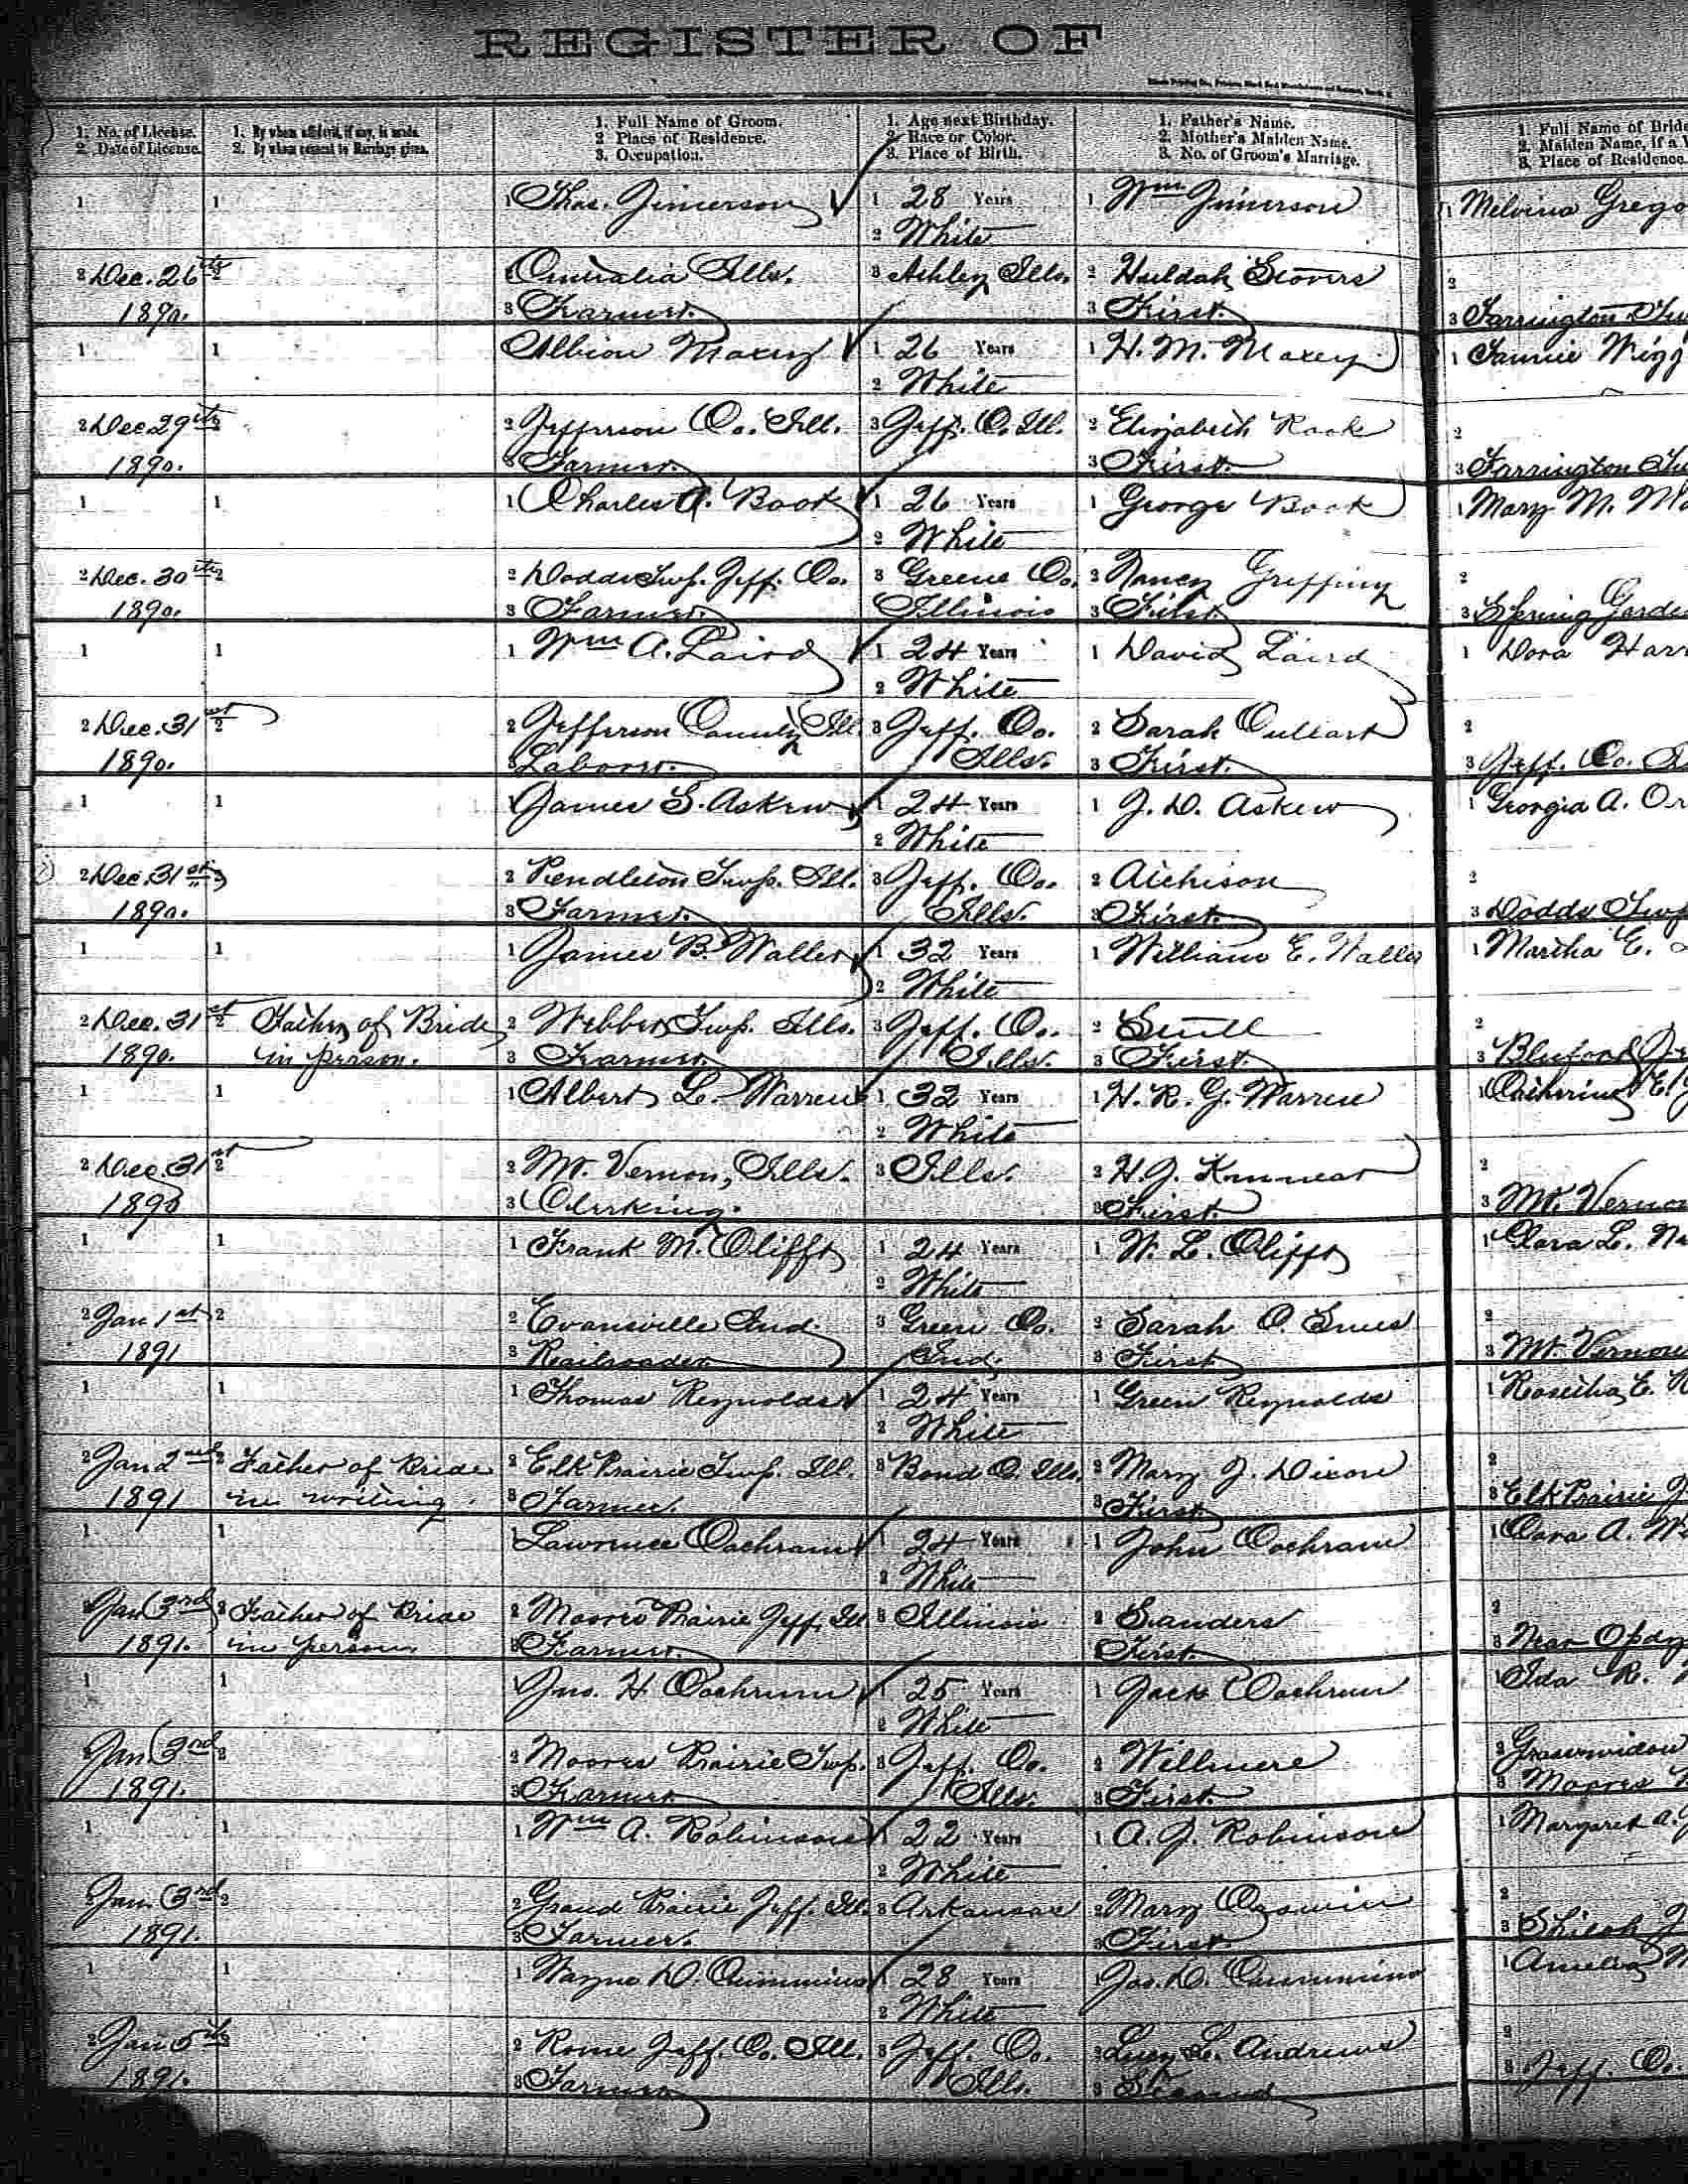 REGISTER OF
1. No. of License.
2. Date of License.
1. By whom affidavit, if any, is made.
2. By whom consent to Marriage given.
1. Full Name of Groom.
2 Place of Residence.
3. Occupation.
1. Age next Birthday.
2. Race or Color.
3. Place of Birth.
1. Father's Name.
2. Mother's Maiden Name.
3. No. of Groom's Marriage.
1. Full Name of Bride
2. Maiden Name, if a W
3. Place of Residence.
1 1 1 Thos. Jimerson 1 28 Years 1 Wm Jimerson 1 Melvina Grego
2 White
2 Dec. 26th 2 Centralia Ills. 3 Ashley Ills. 2 Huldah Stovers 2
1890. 3 Farmer. 3 First. 3 Farrington
1 1 Albion Maxey 1 26 Years 1 H. M. Maxey 1 Fannie Wigg
2 White
2 Dec 29th 2 2 Jefferson Co. Ill. 3 Jeff. Co. Ill. 2 Elizabeth Rook 2
1890. 3 Farmer. 3 First. 3 Farrington
1 1 1 Charles A. Book 1 26 Years 1 George Book 1 Mary M. Ma
2 White
2 Dec. 30th 2 2 Dodds Twp. Jeff. Co. 3 Greene Co. 2 Nancy 2
1890. 3 Farmer. Illinois 3 First 3 Spring Garde
1 1 1 Wm A. Laird 1 24 Years 1 David Laird 1 Dora Harr
2 White
2 Dec. 31st 2 2 Jefferson County Ill. 3 Jeff. Co. 2 Sarah 2
1890. 3 Laborer. Ills. 3 First. 3 Jeff. Co.
1 1 1 James S. Askew 1 24 Years 1 J. D. Askew 1 Georgia A. Or
2 White
2 Dec. 31st 2 Pendleton Twp. Ill. 3 Jeff. Co. 2 Aichison 2
1890. 3 Farmer. Ills. 3 First. 3 Dodds Twp
1 1 1 James B. Waller 1 32 Years 1 William E. Waller 1 Martha E.
2 White
2 Dec. 31st 2 Father of Bride 2 Webber Twp. Ills. 3 Jeff. Co. 2 2
1890. in person. 3 Farmer. Ills. 3 First. 3 Bluford
1 1 1 Albert L. Warren 1 32 Years 1 H. R. G. Warren 1 Catherine E.
2 White
2 Dec. 31st 2 2 Mt. Vernon, Ills. 3 Ills. 2 H. J. 2
1890 3 Clerking. 3 First. 3 Mt. Vernon
1 1 1 Frank M. Oliffs 1 24 Years 1 W. L. Oliffs 1 Clara L.
2 White
2 Jan 1st 2 2 Evansville Ind. 3 Green Co. 2 Sarah 2
1891 3 Railroader Ind. 3 First 3 Mt. Vernon
1 1 1 Thomas Reynolds 1 24 Years 1 Green Reynolds 1
2 White
2 Jan 2nd 2 Father of Bride 2 Elk Prairie Twp. Ill. 3 Bond Co. Ills. 2 Mary J. Dixon 2
1891 in writing. 3 Farmer. 3 First 3 Elk Prairie
1 1 1 Lawrence Cochran 1 24 Years 1 John Cochran 1 Cora A.
2 White
2 Jan 3rd 2 Father of Bride 2 Moores Prairie Jeff. Ill 3 Illinois 2 Sanders 2
1891. in person. 3 Farmer. First. 3 Near Opdy
1 1 1 Jno. H Cochrum 1 25 Years 1 Jack Cochrum 1 Ida R.
2 White
2 Jan 3rd 2 2 Moores Prairie Twp. 3 Jeff. Co. 2 Willmore 2 Grasswidow
1891. 3 Farmer Ills. 3 First. 3 Moores
1 1 1 Wm A. Robinson 1 22 Years 1 A. J. Robinson 1 Margaret A.
2 White
2 Jan. 3rd 2 2 Grand Prairie Jeff. Ill. 3 Arkansas 2 Mary 2
1891. 3 Farmer. 3 First. 3 Shiloh
1 1 1 Wayne D. Cummins 1 28 Years 1 Jas. D. Cummins 1 Amelia
2 White
2 Jan 5th 2 Rome Jeff. Co. Ill. 3 Jeff. Co. 2 Lucy L. Andrews 2
1891. 3 Farmer Ills. 3 Second 3 Jeff. Co.